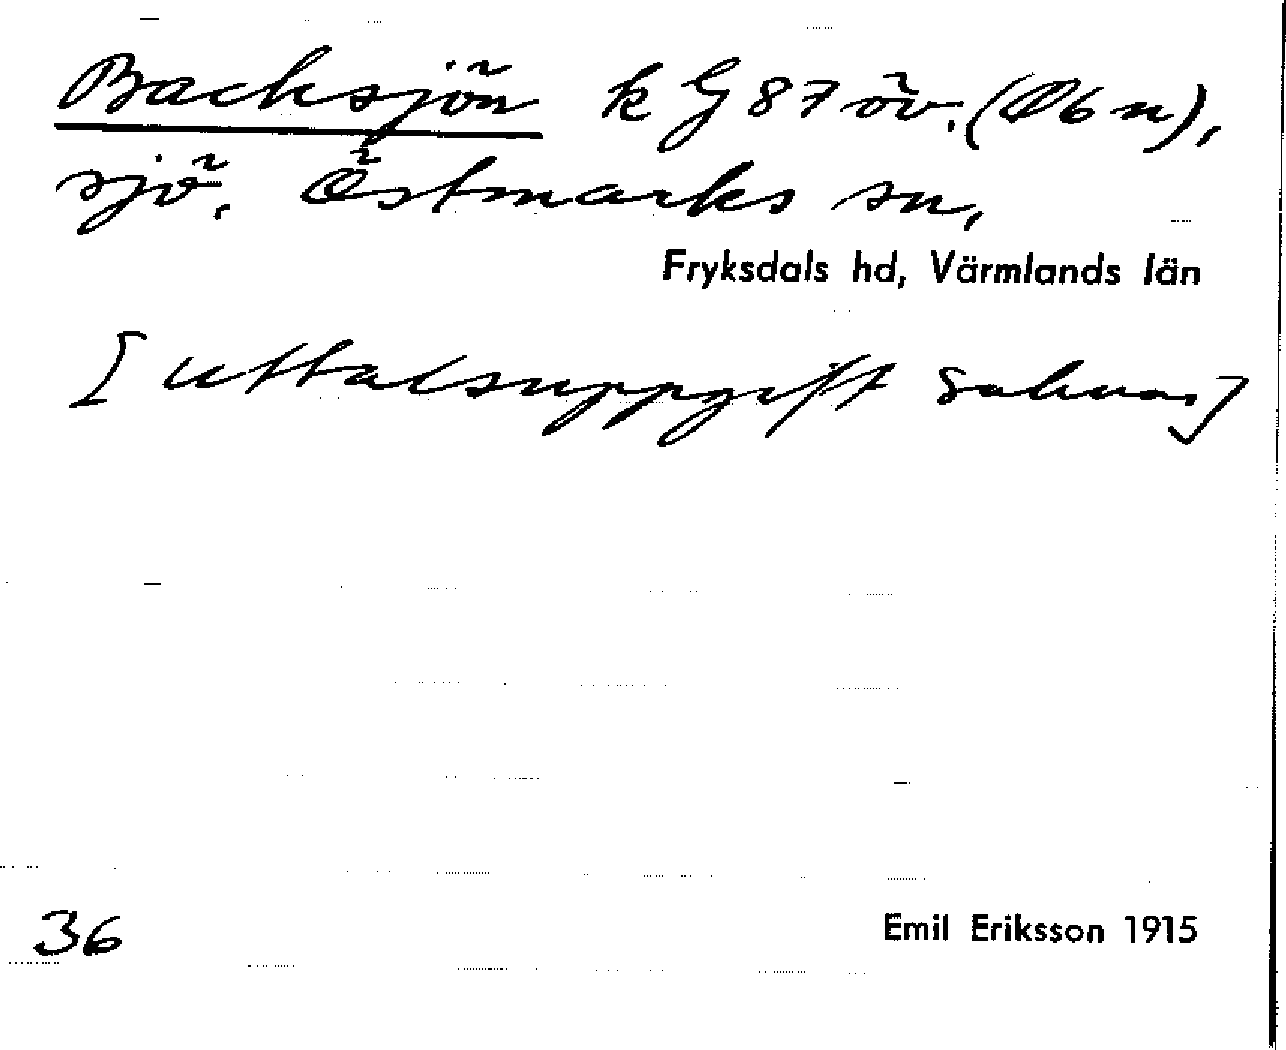 Backsjön k G 87 öv. (Øb n),
sjö, Östmarks sn,
Fryksdals hd, Värmlands län
[uttalsuppgift saknas]
36
Emil Eriksson 1915